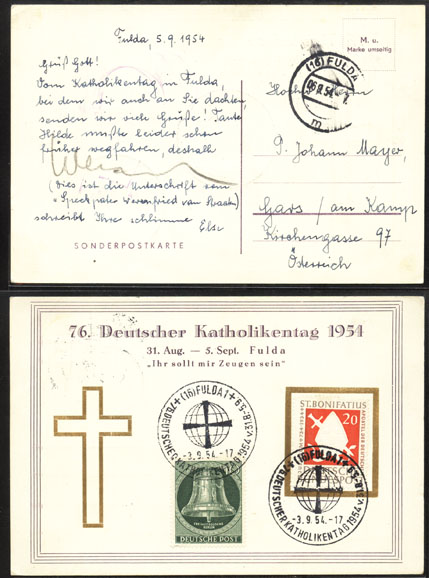 Fulda, 5.9.1954
Grüß Gott!
Vom Katholikentag in Fulda,
bei dem wir auch an Sie dachten,
senden wir viele Grüße! Tante
Hilde mußte leider schon
früher wegfahren, deshalb
(Dies ist die Unterschrift vom
"Speckpater Werenfried van Straaten)
schreibt Ihre schlimme
Else
SONDERPOSTKARTE
M. u.
Marke umseitig
(16) FULDA
m
P. Johann Mayer,
Gars / am Kamp
Kirchengasse 97
Österreich
76. Deutscher Katholikentag 1954
31. Aug. — 5. Sept. Fulda
„Ihr sollt mir Zeugen sein"
(16) FULDA 1
-3.9.54.-17
DEUTSCHE POST
ST. BONIFATIUS
20
(16) FULDA 1
-3.9.54.-17
76. DEUTSCHER KATHOLIKENTAG 1954 v. 31.8.-5.9.